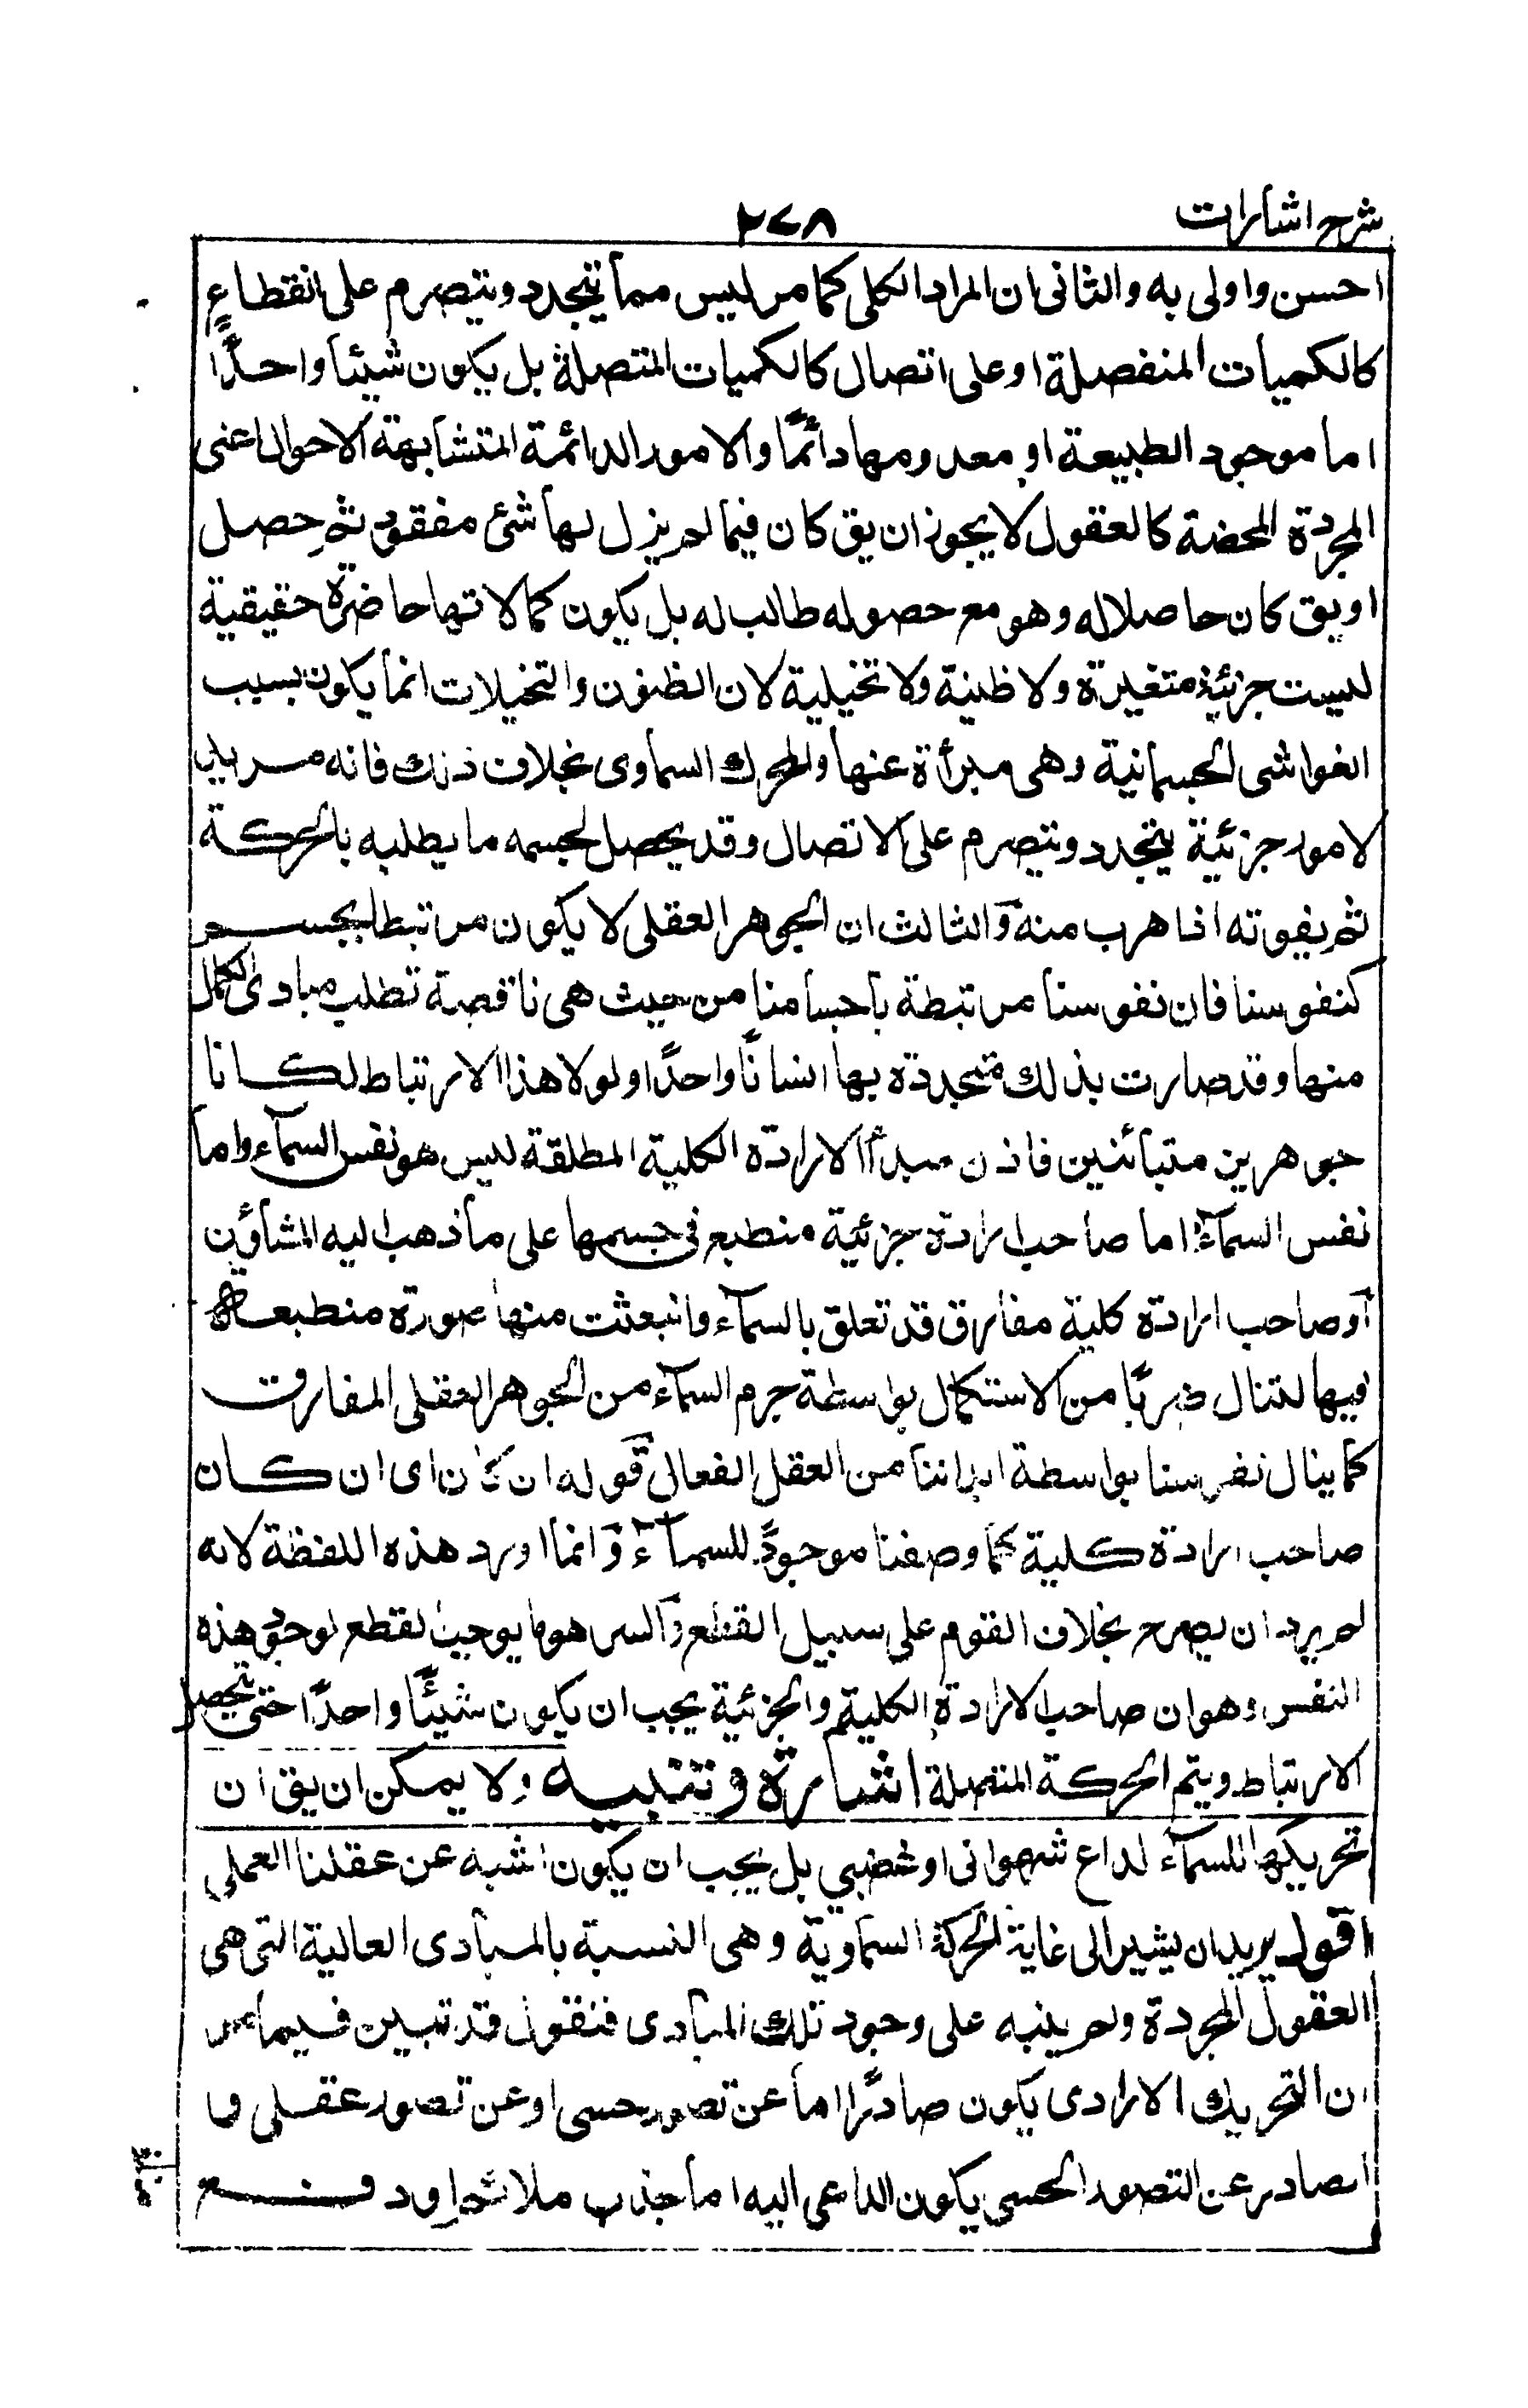 شرح اشارات
٢٧٨
احسن واولى به والثانى ان المراد الكلى كما مر ليس مما يتجدد ويتصرم على انقطاعٍ
كالكميات المنفصلة او على اتصال كالكميات المتصلة بل يكون شيئا واحدًا
اما موجود الطبيعة او معدومها دائمًا والامور الدائمة المتشابهة الاحوال اعنى
المجردة المحضة كالعقول لا يجوز ان يق كان فيما لم يزل لها شئ مفقود ثم حصل
او يق كان حاصلا له وهو مع حصوله طالب له بل يكون كمالاتها حاضرة حقيقية
ليست جزئية متغيرة ولا ظنية ولا تخيلية لان الظنون والتخيلات انما يكون بسبب
الغواشى الجسمانية وهى مبرأة عنها والمحرك السماوى بخلاف ذلك فانه مريد
لامور جزئية يتجدد ويتصرم على الاتصال وقد يحصل لجسمه ما يطلبه بالحركة
ثم يفوته اذا هرب منه والثالث ان الجوهر العقلى لا يكون مرتبطا بجسم
كنفوسنا فان نفوسنا مرتبطة باجسامنا من حيث هى ناقصة تطلب مبادى الكمال
منها وقد صارت بذلك متحددة بها انسانًا واحدًا ولولا هذا الارتباط لكانا
جوهرين متبائنين فاذن مبدأ الارادة الكلية المطلقة ليس هو نفس السمآء واما
نفس السمآء اما صاحب ارادة جزئية منطبع فى جسمها على ما ذهب اليه المشاؤن
او صاحب ارادة كلية مفارق قد تعلق بالسمآء وانبعثت منها صورة منطبعة
فيها لتنال ضربًا من الاستكمال بواسطة جرم السمآء من الجوهر العقلى المفارق
كما ينال نفوسنا بواسطة ابداننا من العقل الفعال قوله ان كان اى ان كان
صاحب ارادة كلية كما وصفنا موجودً للسمآء وانما اورد هذه اللفظة لانه
لم يرد ان يصرح بخلاف القوم على سبيل القطع والسر هو ما يوجب القطع لوجود هذه
النفس وهو ان صاحب الارادة الكلية والجزئية يجب ان يكون شيئًا واحدًا حتى يتحصل
الارتباط ويتم الحركة المتصلة اشارة وتنبيه ولا يمكن ان يق ان
تحريكها للسمآء لداع شهوانى او غضبي بل يجب ان يكون اشبه عن عقلنا العملى
اقول يريد ان يشير الى غاية الحركة السماوية وهى النسبة بالمبادى العالية التى هى
العقول المجردة ولم ينبه على وجود تلك المبادى فنقول قد تبين فيما مر
ان التحريك الارادى يكون صادرًا اما عن تصور حسى او عن تصور عقلى وا
لصادر عن التصور الحسى يكون الداعى اليه اما جذب ملائم او دفع